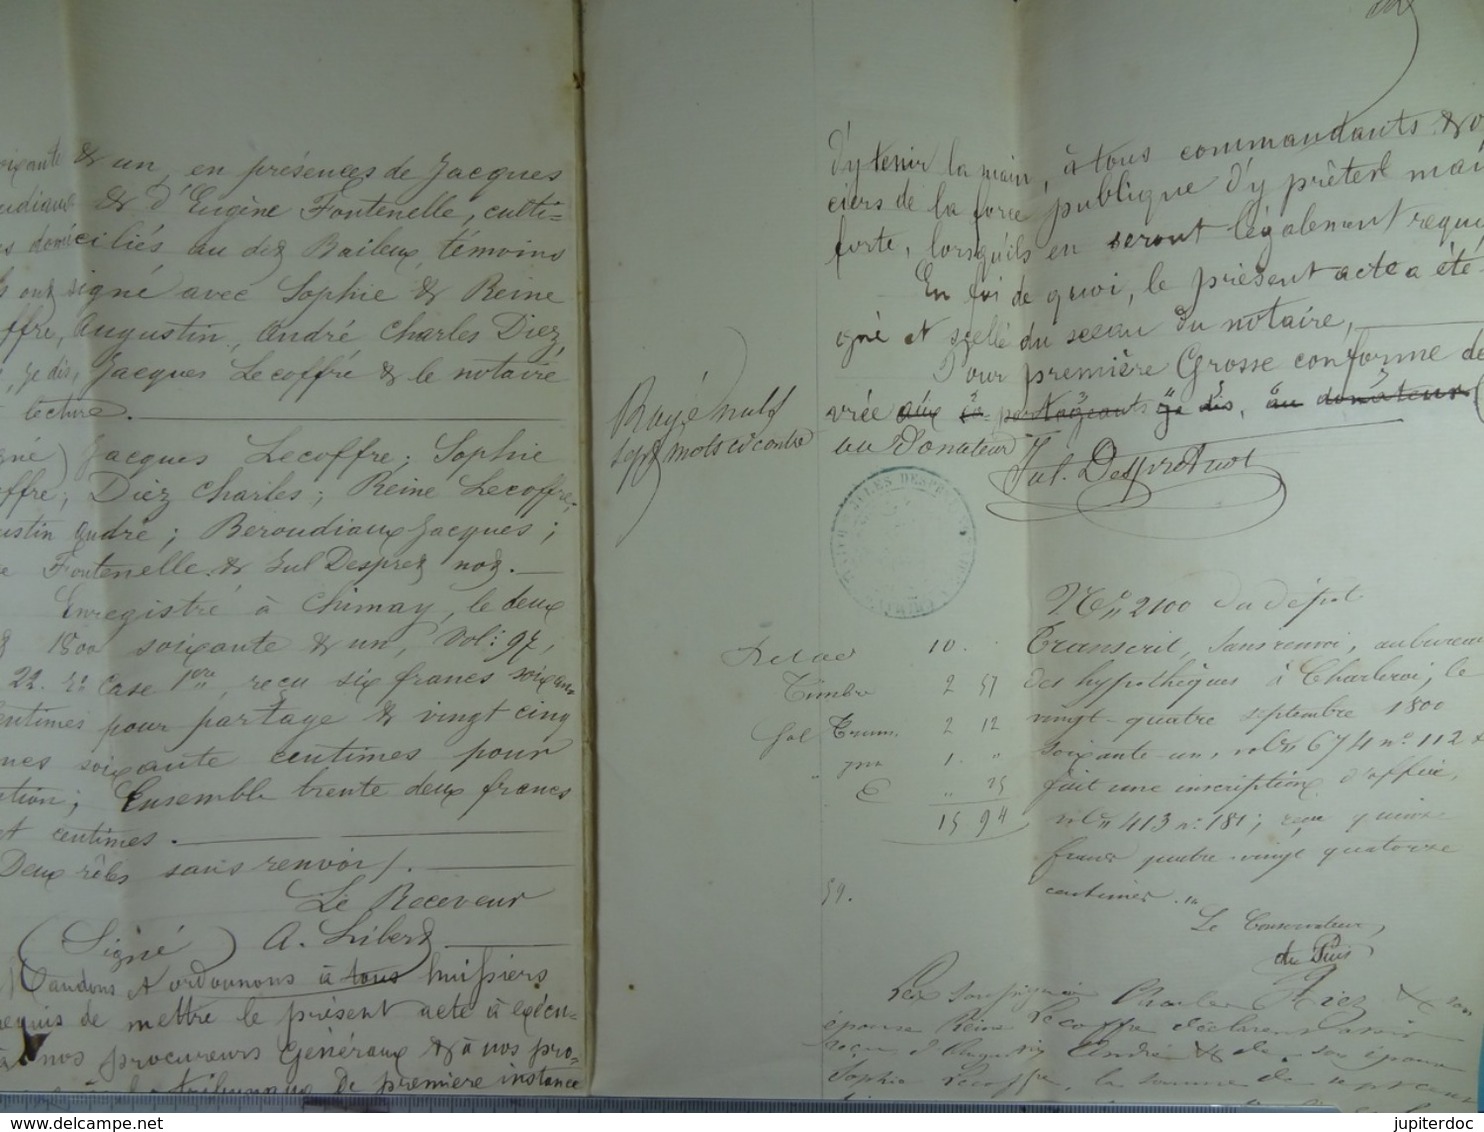 oixante & un, en présences de Jacques
oudiaux & d'Eugène Fontenelle, culti=
s domiciliés au dez Baileux, témoins
s ont signé avec Sophie & Reine
ffre, Augustin, André Charles Diez,
, je dis, Jacques Lecoffre & le notaire
lecture.
gné) Jacques Lecoffre; Sophie
offre; Diez Charles; Reine Lecoffre;
ustin André; Beroudiaux Jacques;
e Fontenelle & Jul Desprez noz.
Enregistré à Chimay, le deux
1800 soixante & un, vol: 97,
22. r° Case 1ère, reçu six francs soixan
centimes pour partage & vingt cinq
nes soixante centimes pour
ation; Ensemble trente deux francs
et centimes.
Deux rôles sans renvoi /.
Le Receveur
(Signé) A. Libert
Mandons et ordonnons à tous huissiers
requis de mettre le présent acte à exécu-
à nos procureurs Généraux & à nos pro=
tribunaux de première instance
Rayé nuls
sept mots ci contre
d'y tenir la main, à tous commandants & o
ciers de la force publique d'y prêter mai
forte, lorsqu'ils en seront légalement requi
En foi de quoi, le présent acte a été
igné et scellé du sceau du notaire,
Pour première Grosse conforme dé
vrée aux co-partageants je dis, au donateur (
au Donateur
Jul. Desprez not
JULES DESPRE
CHIMAY
N° 2100 du dépôt
Transcrit, sans renvoi, au bureau
des hypothèques à Charleroi, le
vingt-quatre septembre 1800
soixante-un, vol. 674 n° 112 &
fait une inscription d'office,
vol. 413 n° 181; reçu quinze
francs quatre-vingt quatorze
centimes.
Le Conservateur,
du Puis
10.
Timbre 2 57
Sal Trans. 2 12
1. "
" 25
15 94
59.
Les soussignés Charles Diez & son
épouse Reine Lecoffre déclarent avoir
reçu d'Augustin André & de son épouse
Sophie Lecoffre, la somme de
www.delcampe.net
jupiterdoc